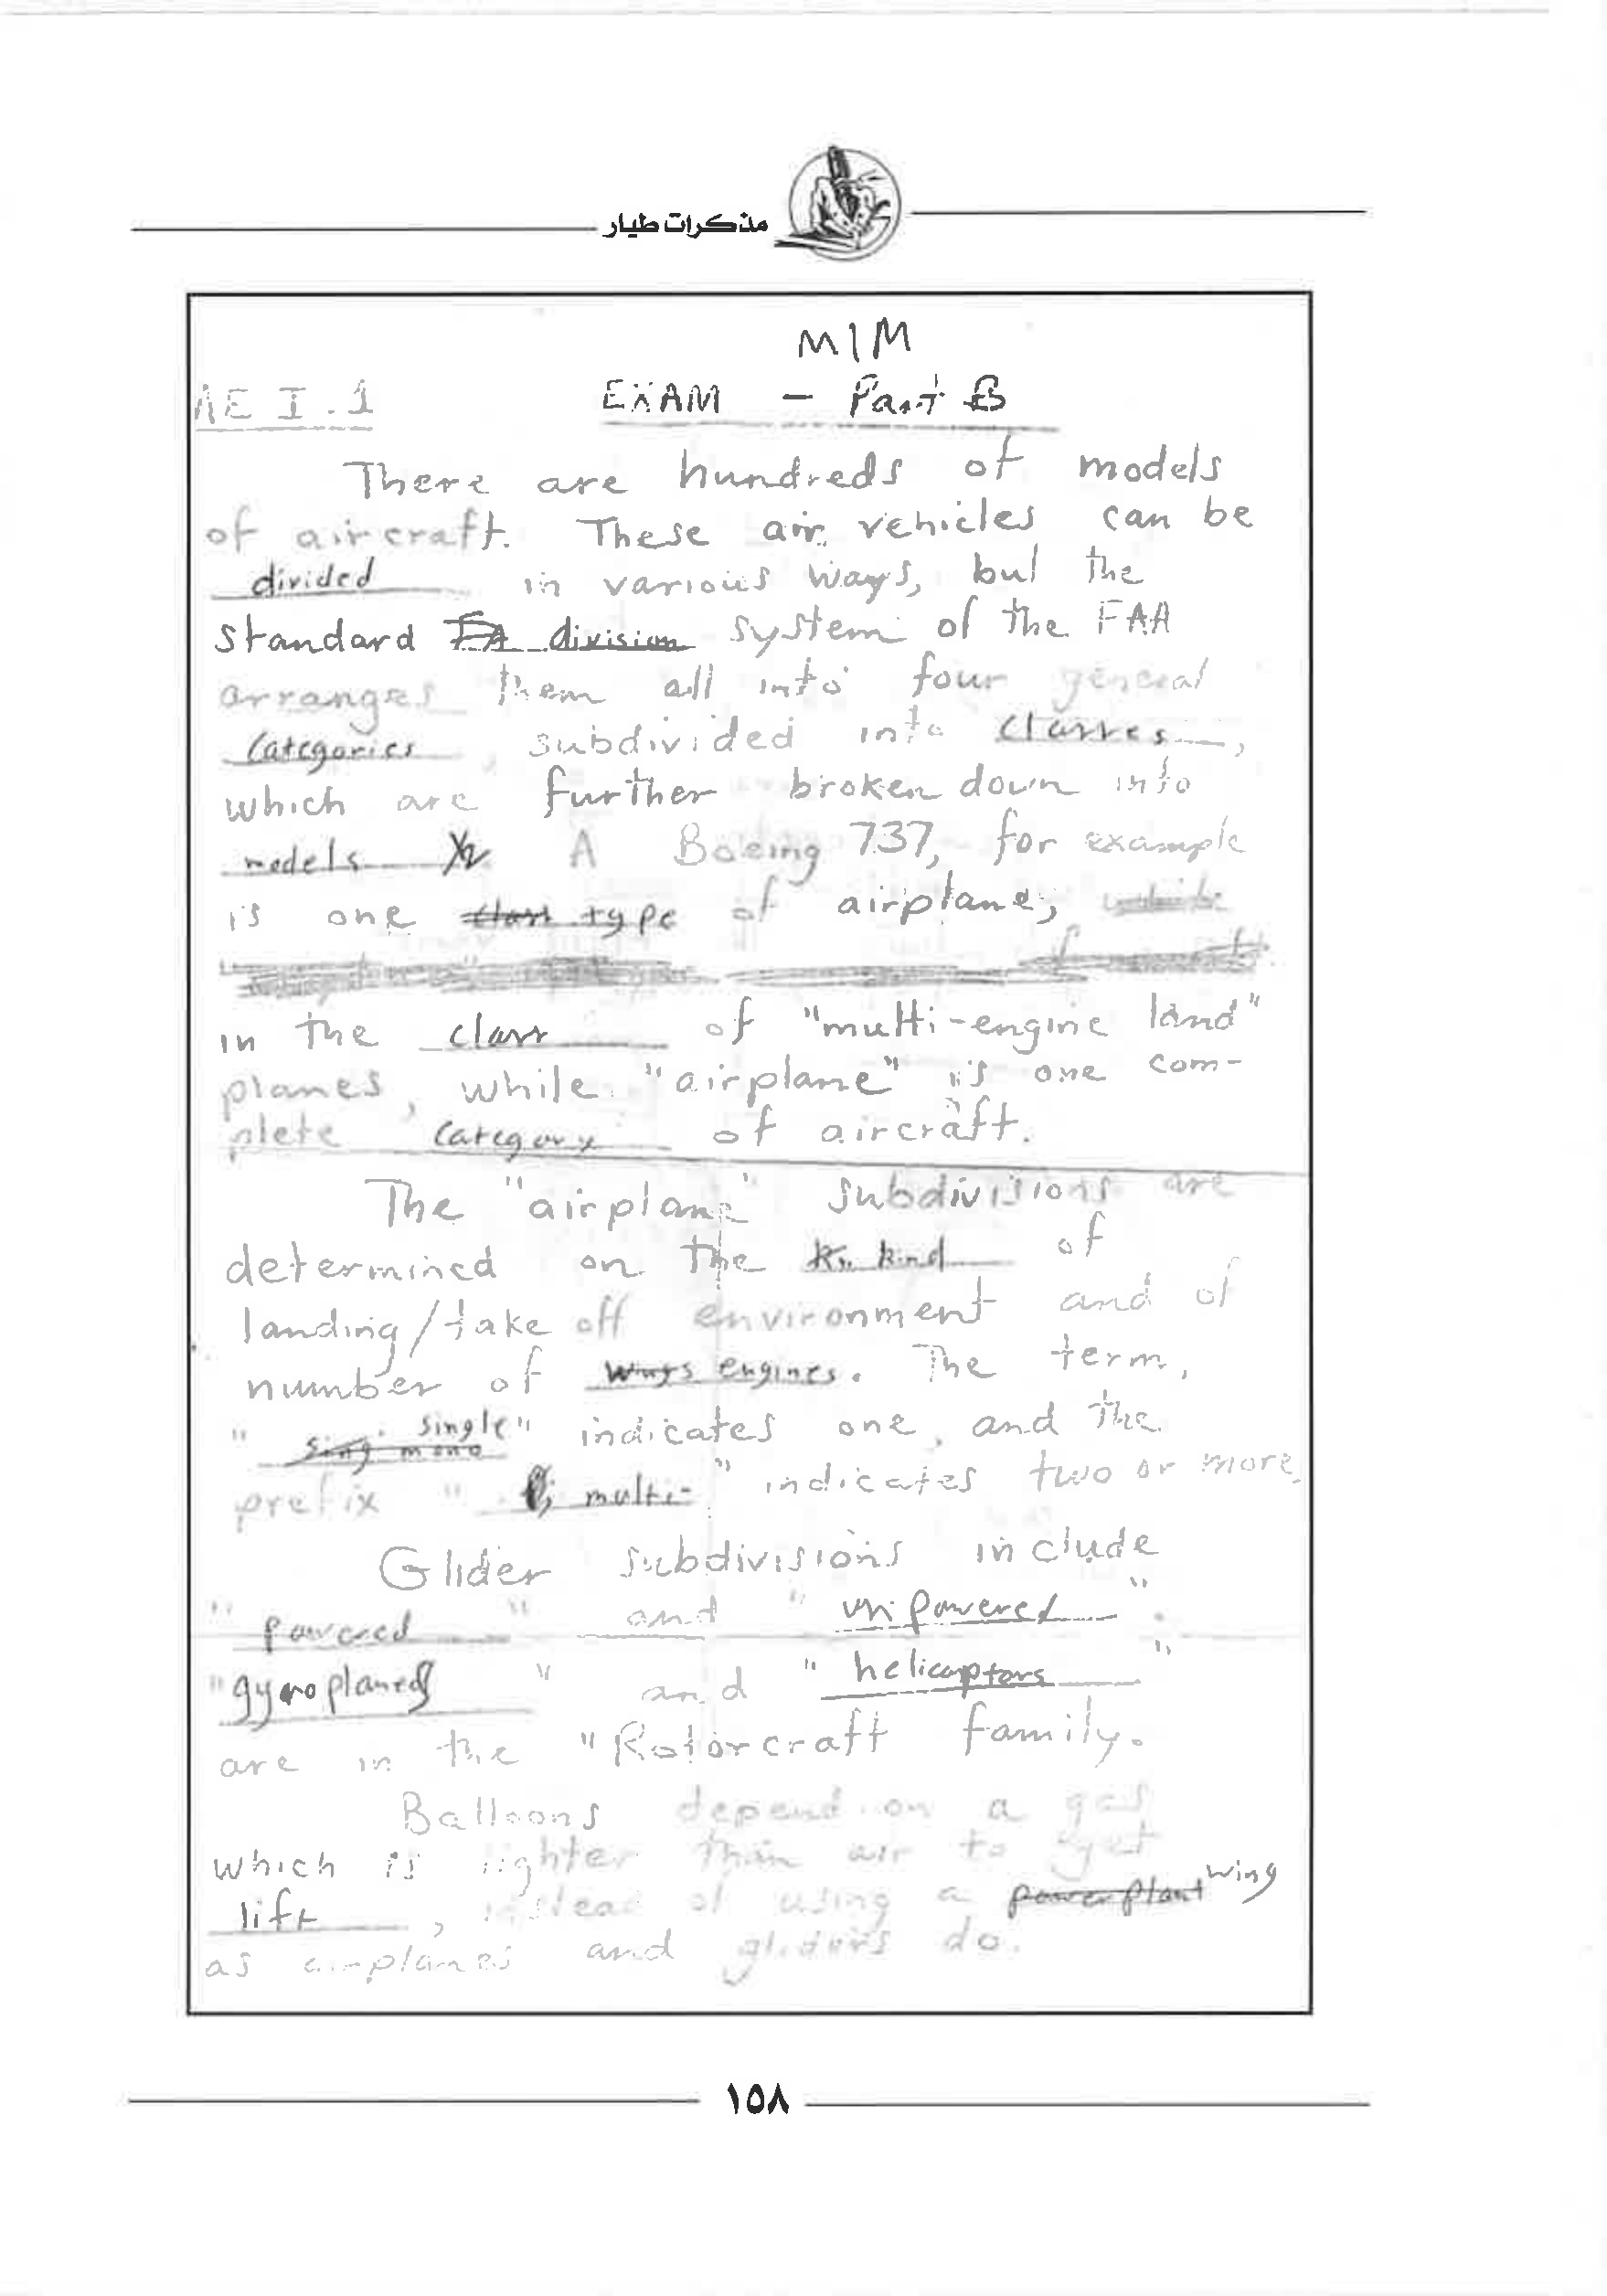 مذكرات طيار
MIM
AE I.1 EXAM - Part B
There are hundreds of models
of aircraft. These air vehicles can be
divided in various ways, but the
standard FA division system of the FAA
arranges them all into four general
Categories, subdivided into classes,
which are further broken down into
models A Boeing 737, for example
is one class type of airplane, while
in the class of "multi-engine land"
planes, while "airplane" is one com-
plete Category of aircraft.
The "airplane" subdivisions are
determined on the Kn kind of
landing/take off environment and of
number of wings engines. The term,
"sing mono single" indicates one, and the
prefix " multi-" indicates two or more
Glider subdivisions include
"powered" and "unpowered".
"gyroplanes" and "helicoptors"
are in the "Rotorcraft family.
Balloons depend on a gas
which is lighter than air to get
lift, instead of using a powerplant wing
as airplanes and gliders do.
١٥٨